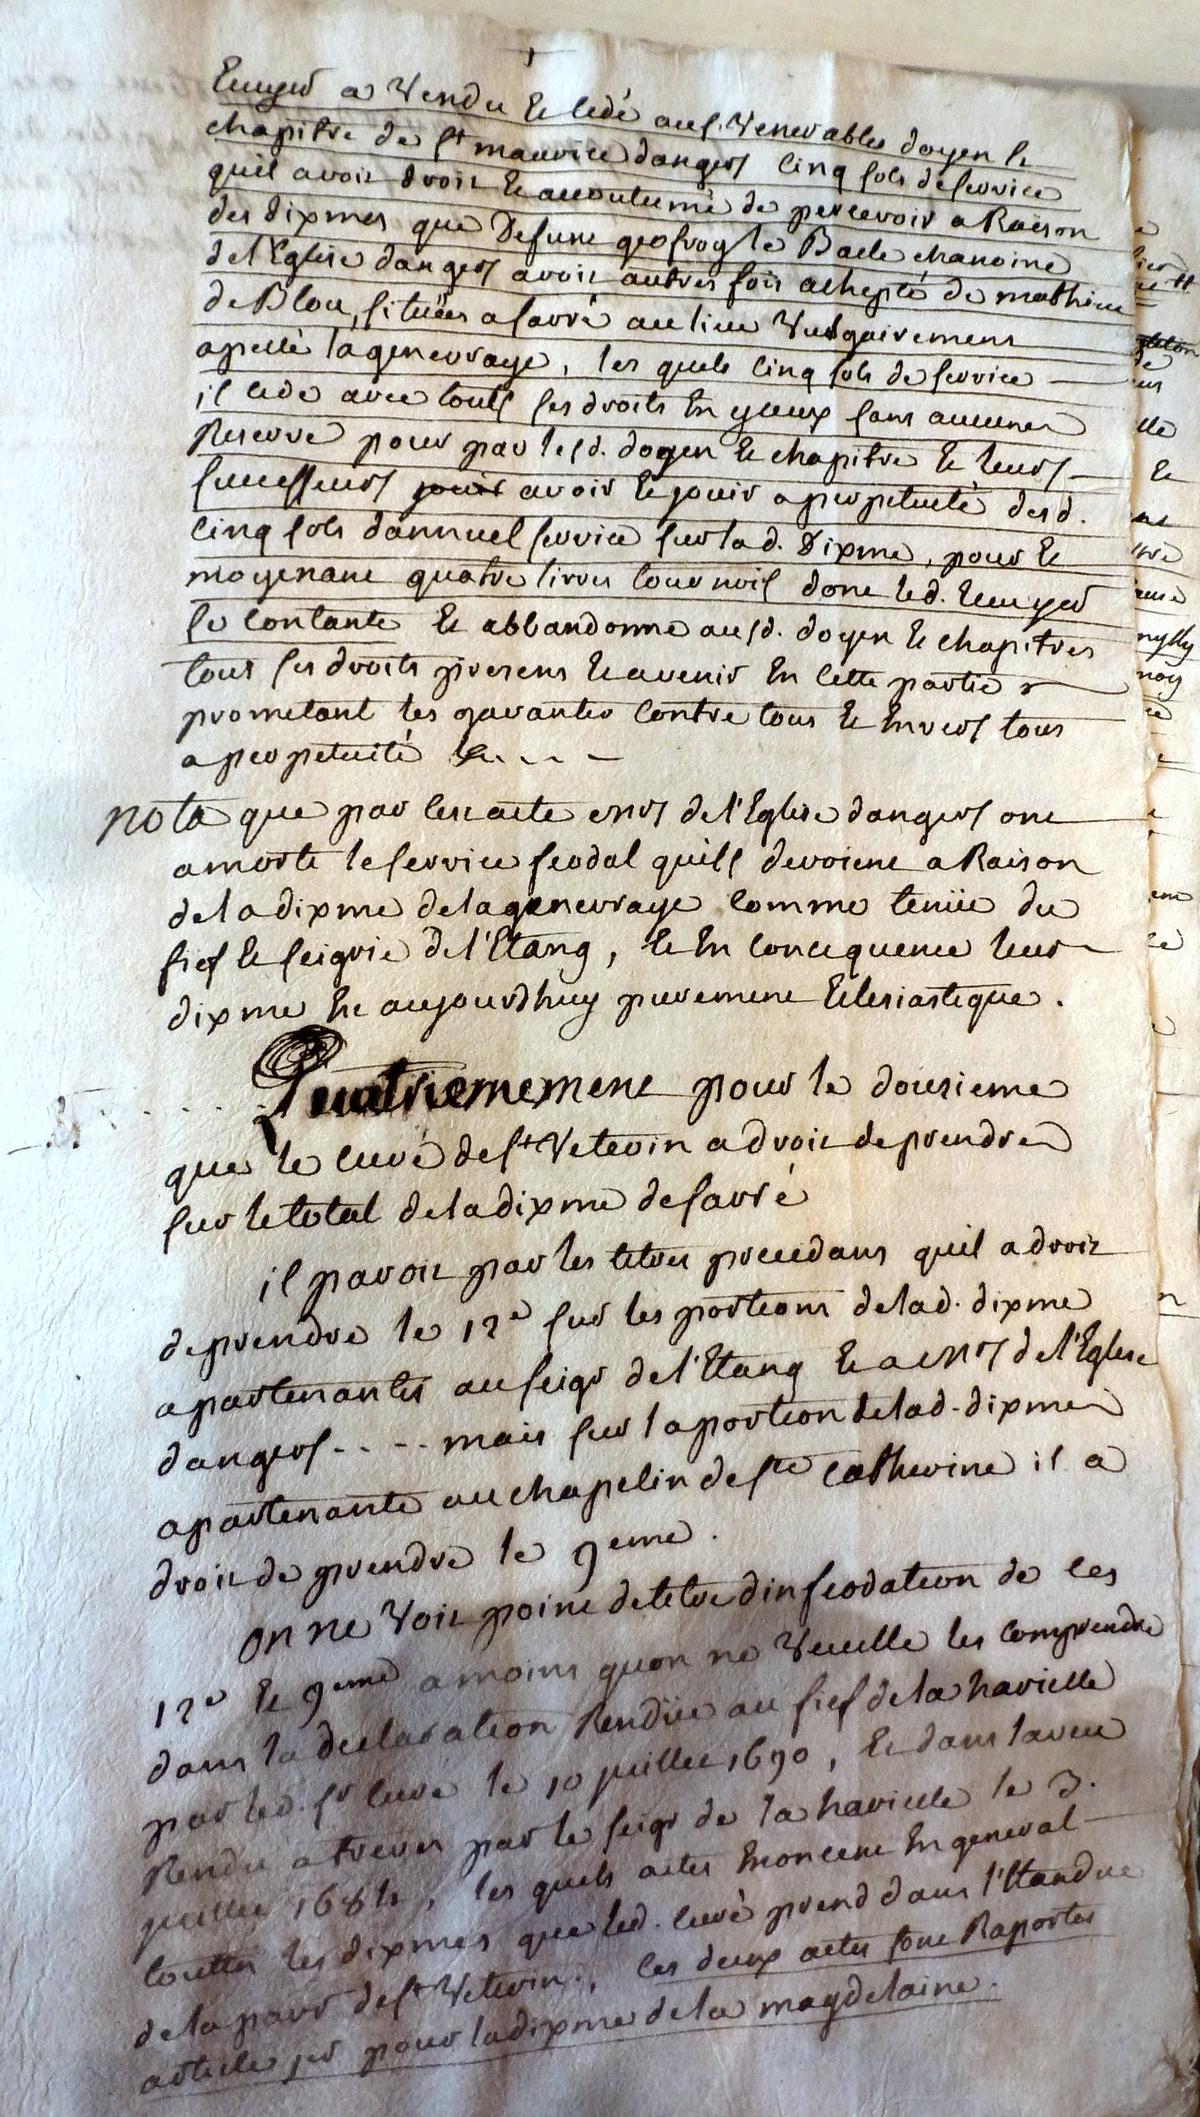 Ecuyer a Vendu Et Cedé aus. Venerables doyen Et
chapitre de St maurice dangers Cinq sols de service
quil avoit droit Et accoutumé de percevoir a Raison
des dixmes que Defunt geofroy le Bacle chanoine
de l'Eglise dangers avoit autres fois achepté de mathieu
de Blou, situées a sarré au lieu Vulgairement
apellé la genevraye, les quels Cinq sols de service
il cede avec touts ses droits En yceux sans aucunes
Reserve pour par lesd. doyen Et chapitre Et leurs
successeurs jouir avoir Et jouir a perpetuité desd.
Cinq sols dannuel service sur lad. Dixme, pour Et
moyenant quatre livres tournois dont led. Ecuyer
se contante Et abbandonne ausd. doyen Et chapitres
tous ses droits presens Et avenir En cette partie
prometant les garantir Contre tous Et Envers tous
a perpetuité &...
nota que par cest acte mrs de l'Eglise dangers ont
amorti le service feodal quils devoient a Raison
de la dixme de la genevraye comme tenüe du
fief Et seigrie de l'Etang, Et En consequence leur
dixme Est aujourdhuy purement Eclesiastique.
Quatriemement pour le dousieme
que le curé de St Veterin a droit de prendre
sur le total de la dixme de sarré
il paroit par les titres precedans quil a droit
de prendre le 12e sur les portions de lad. dixme
apartenantes au seigr de l'Etang Et a mrs de l'Eglise
dangers.... mais sur la portion de lad. dixme
apartenante au chapelin de ste Catherine il a
droit de prendre le 9eme.
on ne Voit point de titre dinfeodation de ces
12e Et 9eme a moins quon ne Veuille les comprendre
dans la declaration Rendüe au fief de la harielle
par led. sr Curé le 10 juillet 1690, Et dans laveu
Rendu a treves par le seigr de la harielle le 3.
juillet 1684, les quels actes Enoncent En general
touttes les dixmes que led. Curé prend dans l'Etandue
de la parr de St Veterin, ces deux actes sont Raportes
article per pour la dixme de la magdelaine.